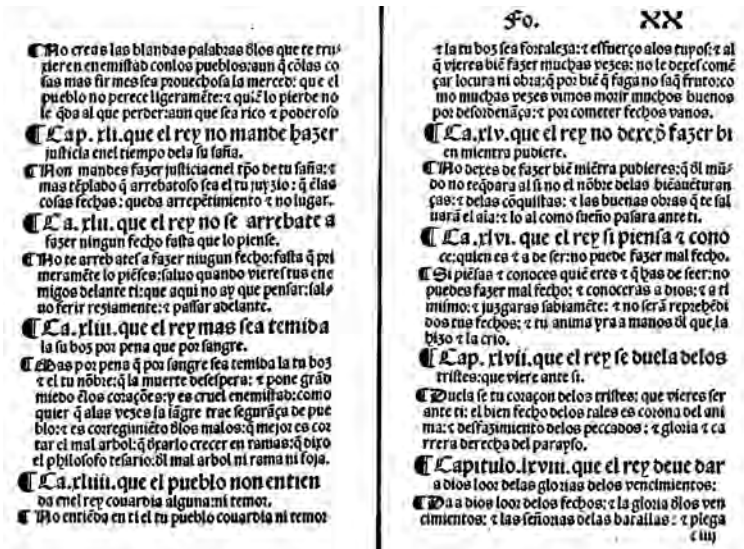 ¶ No creas las blandas palabras dlos que te tru-
xieren enemistad conlos pueblos: aun q̃ cõlas co
sas mas firmes sea prouechosa la merced: que el
pueblo no perece ligeramẽte: ⁊ quiẽ lo pierde no
le q̃da al que perder: aun que sea rico ⁊ poderoso
¶ Cap. xlii. que el rey no mande hazer
justicia enel tiempo dela su saña.
¶ Non mandes fazer justicia enel tp̃o de tu saña: ⁊
mas tẽplado q̃ arrebatoso sea el tu juyzio: q̃ ẽlas
cosas fechas: queda arrepẽtimiento ⁊ no lugar.
¶ Ca. xlii. que el rey no se arrebate a
fazer ningun fecho fasta que lo piense.
¶ No te arrebates a fazer niugun fecho: fasta q̃ pri
meramẽte lo piẽses: saluo quando vieres tus ene
migos delante ti: que aqui no ay que pensar: sal-
uo ferir reziamente: ⁊ passar adelante.
¶ Ca. xliii. que el rey mas sea temida
la su boz por pena que por sangre.
¶ Mas por pena q̃ por sangre sea temida la tu boz
⁊ el tu nõbre: q̃ la muerte desespera: ⁊ pone grãd
miedo ẽlos corações: y es cruel enemistad: como
quier q̃ alas vezes la sãgre trae segurãça de pue
blo: ⁊ es corregimiẽto dlos malos: q̃ mejor es cor
tar el mal arbol: q̃ dexarlo crecer en ramas: q̃ dixo
el philosofo tesario: dl mal arbol ni rama ni foja.
¶ Ca. xliiii. que el pueblo non entien
da enel rey couardia alguna: ni temor.
¶ No entiẽda en ti el tu pueblo couardia ni temor
Fo. XX
⁊ la tu boz sea fortaleza: ⁊ effuerço alos tuyos: ⁊ al
q̃ vieres biẽ fazer muchas vezes: no le dexes comẽ
çar locura ni obra: q̃ por biẽ q̃ faga no saq̃ fruto: co
mo muchas vezes vimos morir muchos buenos
por desordenãça: ⁊ por cometer fechos vanos.
¶ Ca. xlv. que el rey no dexe d̃ fazer bi
en mientra pudiere.
¶ No dexes de fazer biẽ miẽtra pudieres: q̃ dl mũ
do no te q̃dara al si no el nõbre delas biẽauẽturan
ças: ⁊ delas cõquistas: ⁊ las buenas obras q̃ te sal
uarã el aĩa: ⁊ lo al como sueño pasara ante ti.
¶ Ca. xlvi. que el rey si piensa ⁊ cono
ce: quien es ⁊ a de ser: no puede fazer mal fecho.
¶ Si piẽsas ⁊ conoces quiẽ eres ⁊ q̃ has de seer: no
puedes fazer mal fecho: ⁊ conoceras a dios: ⁊ a ti
mismo: ⁊ juzgaras sabiamẽte: ⁊ no serã reprehẽdi
dos tus fechos: ⁊ tu anima yra a manos dl que la
hizo ⁊ la crio.
¶ Cap. xlvii. que el rey se duela delos
tristes: que viere ante si.
¶ Duela se tu coraçon delos tristes: que vieres ser
ante ti: el bien fecho delos tales es corona del ani
ma: ⁊ desfazimiento delos peccados: ⁊ gloria ⁊ ca
rrera derecha del parayso.
¶ Capitulo. lxviii. que el rey deue dar
a dios loor delas glorias delos vencimientos:
¶ Da a dios loor delos fechos: ⁊ la gloria dlos ven
cimientos: ⁊ las señorias delas batallas: ⁊ plega
c iiij